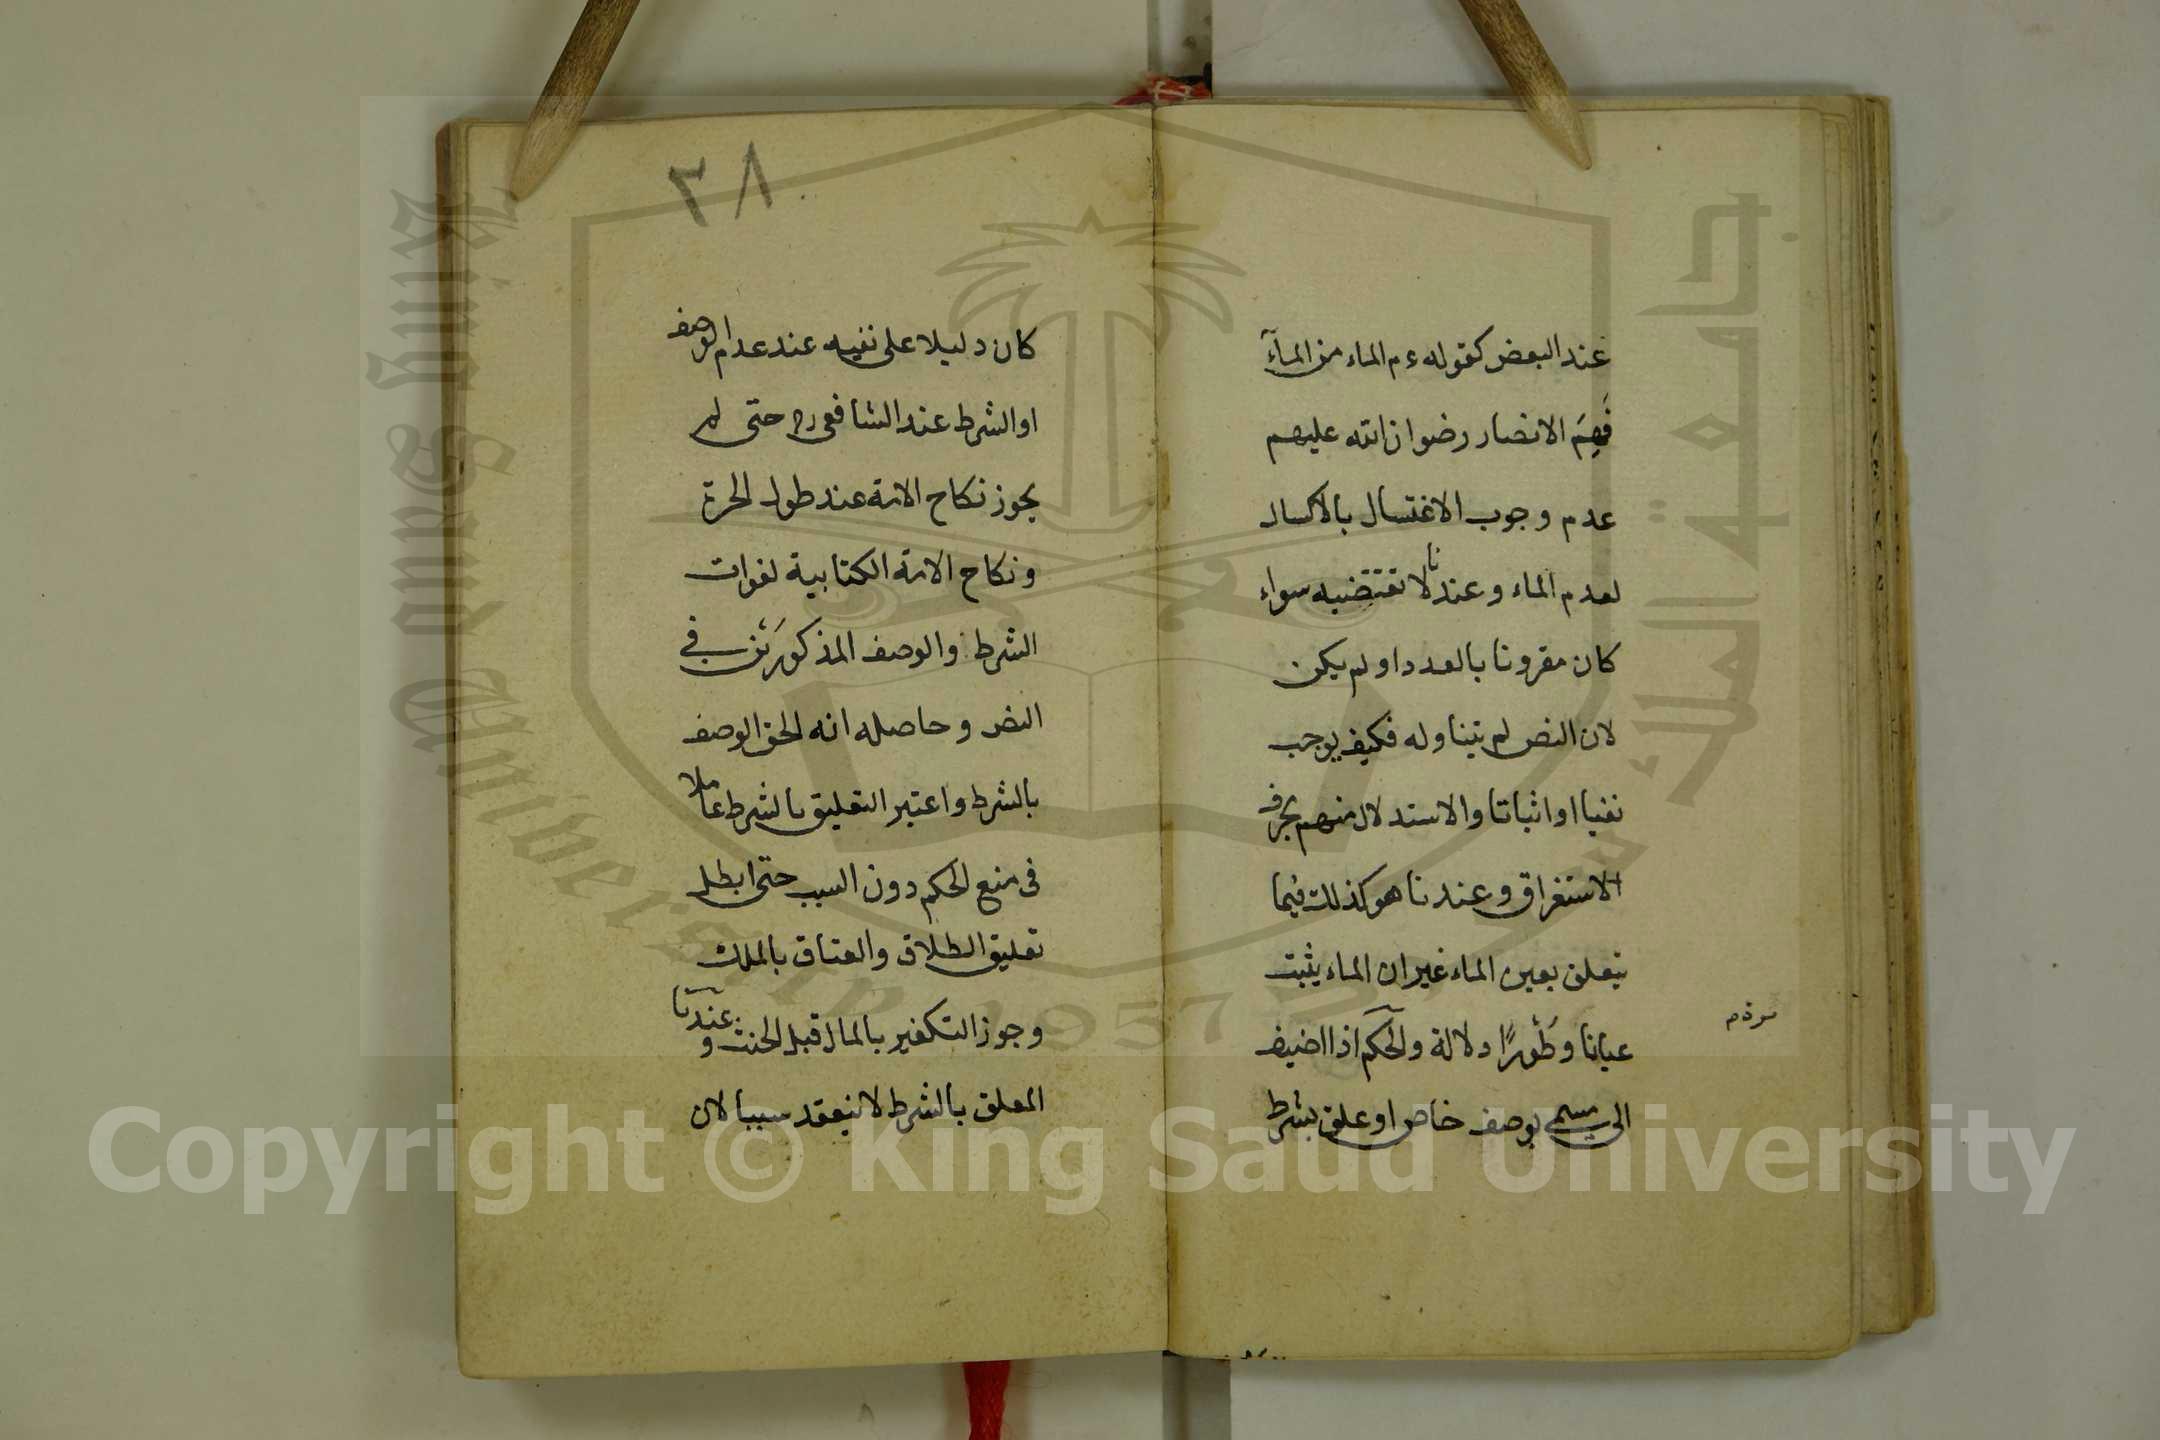 عند البعض كقوله ءم الماء من المآء
فَهِمَ الانصار رضوان الله عليهم
عدم وجوب الاغتسال بالاكسال
لعدم الماء وعندنا لا تقتضيه سواء
كان مقرونا بالعدد او لم يكن
لان النص لم يتناوله فكيف يوجب
نفيا او اثباتا والاستدلال منهم بحرف
الاستغراق وعندنا هو كذلك فيما
يتعلق بعين الماء غير ان الماء يثبت
عيانا وطَوْرًا دلالة والحكم اذا اضيف
الى مسمى بوصف خاص او علق بشرط
٢٨
كان دليلا على نفيه عند عدم الوصف
او الشرط عند الشافعى رح حتى لم
يجوز نكاح الامة عند طول الحرة
ونكاح الامة الكتابية لفوات
الشرط والوصف المذكورَيْن في
النص وحاصله انه الحق الوصف
بالشرط واعتبر التعليق بالشرط عاملا
فى منع الحكم دون السبب حتى ابطل
تعليق الطلاق والعتاق بالملك
وجوز التكفير بالمال قبل الحنث وعندنا
المعلق بالشرط لا ينعقد سببا لان
جامعة الملك سعود
King Saud University
1957
Copyright © King Saud University